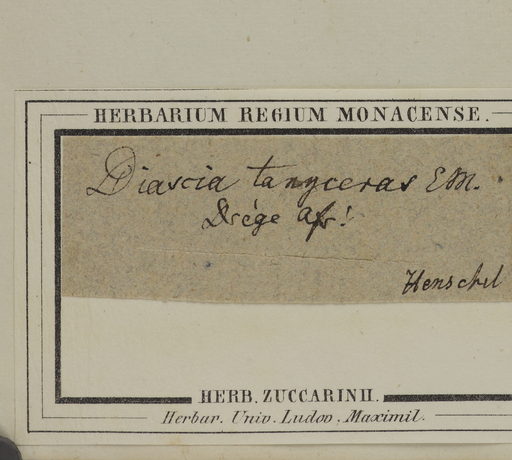 HERBARIUM REGIUM MONACENSE.
Diascia tanyceras EM.
Drége afr!
Henschel
HERB. ZUCCARINII.
Herbar. Univ. Ludov. Maximil.